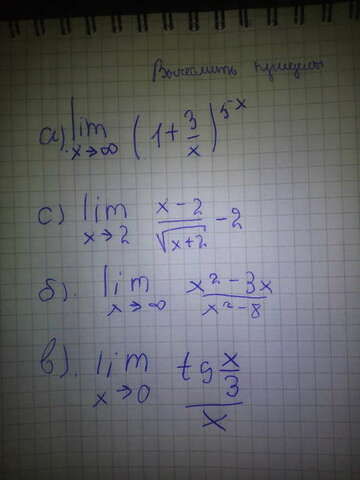 Вычислить пределы
а) lim x→∞ (1+3/x)^5x
с) lim x→2 x-2/√x+2 -2
б). lim x→∞ x²-3x/x²-8
в). lim x→0 tg x/3 / x